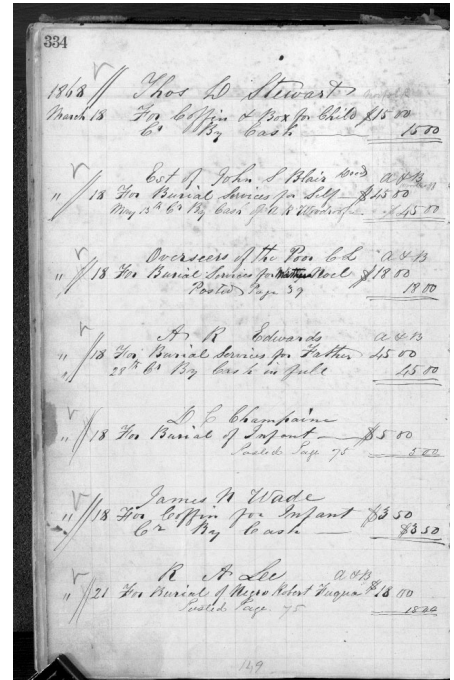 334
1868 Thos D Stewart
March 18 For Coffin & Box for Child $15 00
Cr By Cash 15 00
Est of John S Blair Decd A & B
" 18 For Burial Services for Self $45 00
May 13th Cr By Cash of A R Woodroof 45 00
Overseers of the Poor C L A & B
" 18 For Burial Services for Noel $18 00
Posted Page 39 18 00
A R Edwards A & B
" 18 For Burial Services for Father 45 00
" 28th Cr By Cash in full 45 00
D C Champaine
" 18 For Burial of Infant $5 00
Posted Page 75 5 00
James N Wade
" 18 For Coffin for Infant $3 50
Cr By Cash $3 50
R A Lee A & B
" 21 For Burial of Negro Robert Fuqua $18 00
Posted Page 75 18 00
149